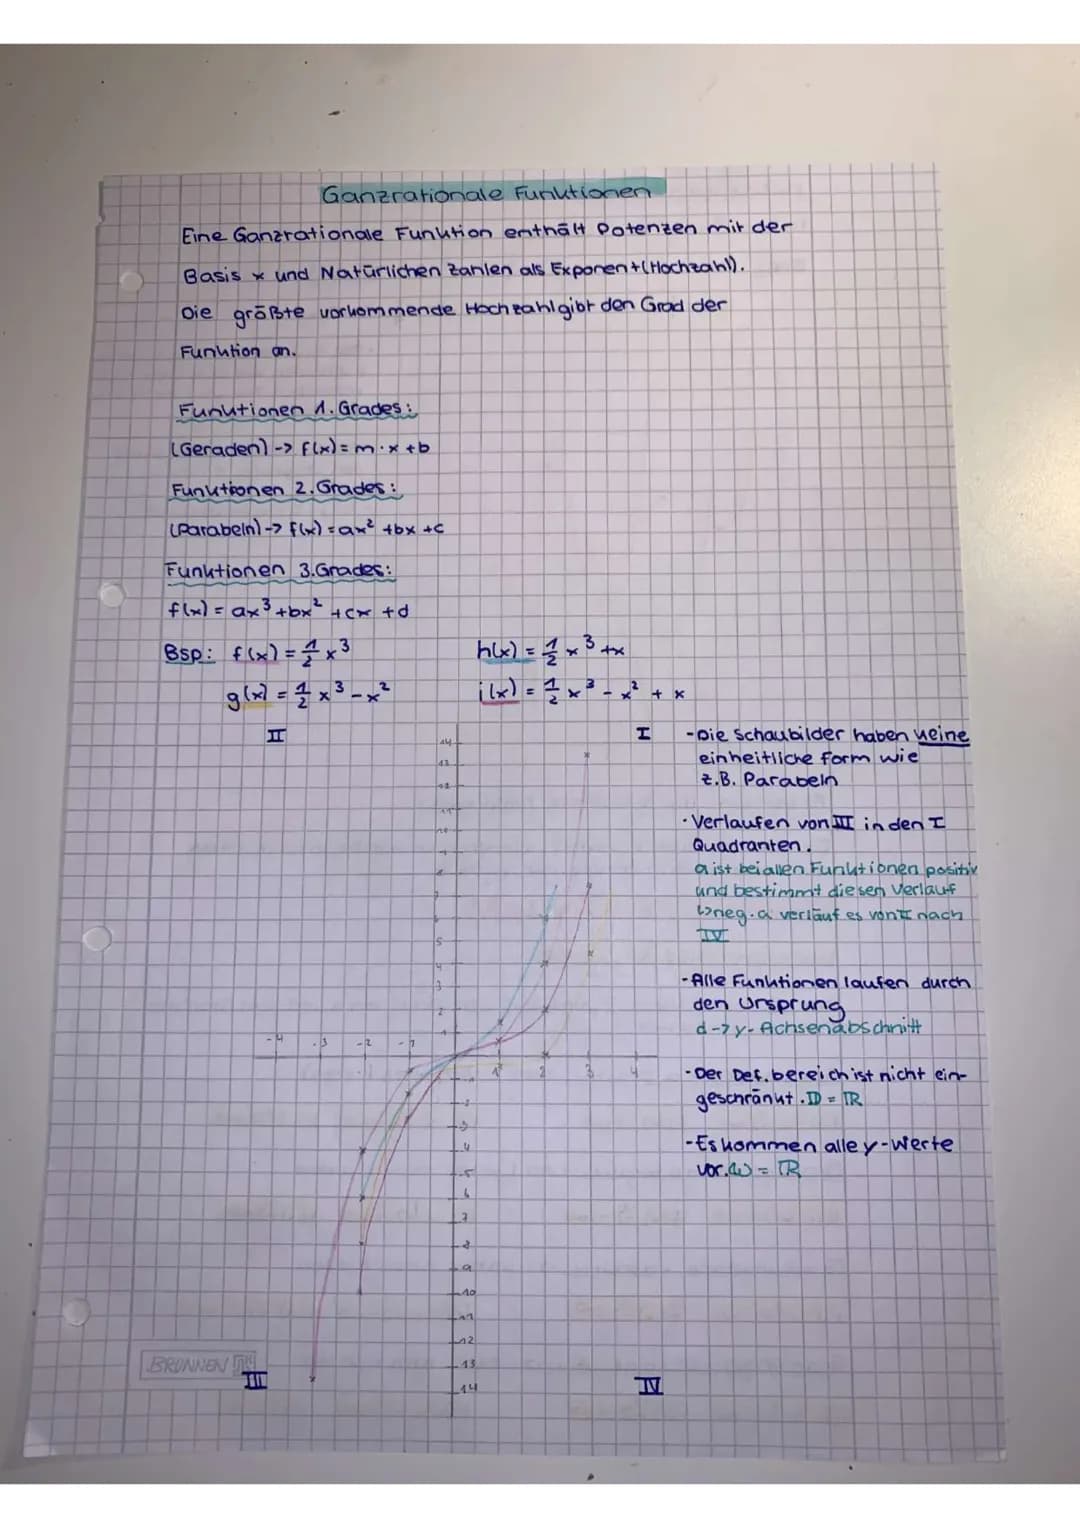 Ganzrationale Funktionen
Eine Ganzrationale Funktion enthält Potenzen mit der
Basis x und Natürlichen Zahlen als Exponent (Hochzahl).
Die größte vorkommende Hochzahl gibt den Grad der
Funktion an.
Funktionen 1. Grades:
(Geraden) -> f(x) = m·x + b
Funktionen 2. Grades:
(Parabeln) -> f(x) = ax² + bx + c
Funktionen 3. Grades:
f(x) = ax³ + bx² + cx + d
Bsp: f(x) = 1/2 x³ h(x) = 1/2 x³ + x
g(x) = 1/2 x³ - x² i(x) = 1/2 x³ - x² + x
II I
- Die Schaubilder haben keine
einheitliche Form wie
z.B. Parabeln
· Verlaufen von III in den I
Quadranten.
a ist bei allen Funktionen positiv
und bestimmt diesen Verlauf
↳ neg. a verläuf es von II nach
IV
- Alle Funktionen laufen durch
den Ursprung
d -> y-Achsenabschnitt
- Der Def.bereich ist nicht ein-
geschränkt. D = ℝ
- Es kommen alle y-Werte
vor. W = ℝ
14
13
12
11
10
5
4
3
2
1
-4 -3 -2 -1 1 2 3 4
-1
-2
-3
-4
-5
-6
-7
-8
-9
-10
-11
-12
-13
-14
BRUNNEN
III IV